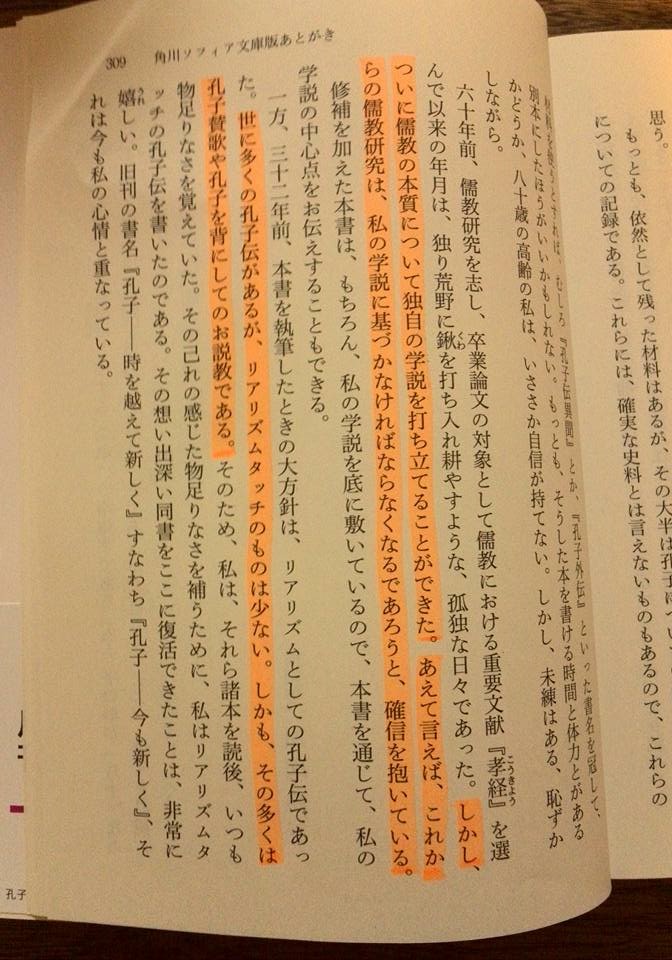 思う。
もっとも、依然として残った材料はあるが、その大半は孔子に
についての記録である。これらには、確実な史料とは言えないものもあるので、これらの
309 角川ソフィア文庫版あとがき
とすれば、むしろ『孔子伝異聞』とか、『孔子外伝』といった書名を冠して、
別本にしたほうがいいかもしれない。もっとも、そうした本を書ける時間と体力とがある
かどうか、八十歳の高齢の私は、いささか自信が持てない。しかし、未練はある、恥ずか
しながら。
六十年前、儒教研究を志し、卒業論文の対象として儒教における重要文献『孝経』を選
んで以来の年月は、独り荒野に鍬を打ち入れ耕やすような、孤独な日々であった。しかし、
ついに儒教の本質について独自の学説を打ち立てることができた。あえて言えば、これか
らの儒教研究は、私の学説に基づかなければならなくなるであろうと、確信を抱いている。
修補を加えた本書は、もちろん、私の学説を底に敷いているので、本書を通じて、私の
学説の中心点をお伝えすることもできる。
一方、三十二年前、本書を執筆したときの大方針は、リアリズムとしての孔子伝であっ
た。世に多くの孔子伝があるが、リアリズムタッチのものは少ない。しかも、その多くは
孔子賛歌や孔子を背にしてのお説教である。そのため、私は、それら諸本を読後、いつも
物足りなさを覚えていた。その己れの感じた物足りなさを補うために、私はリアリズムタ
ッチの孔子伝を書いたのである。その想い出深い同書をここに復活できたことは、非常に
嬉しい。旧刊の書名『孔子――時を越えて新しく』すなわち『孔子――今も新しく』、そ
れは今も私の心情と重なっている。
孔子